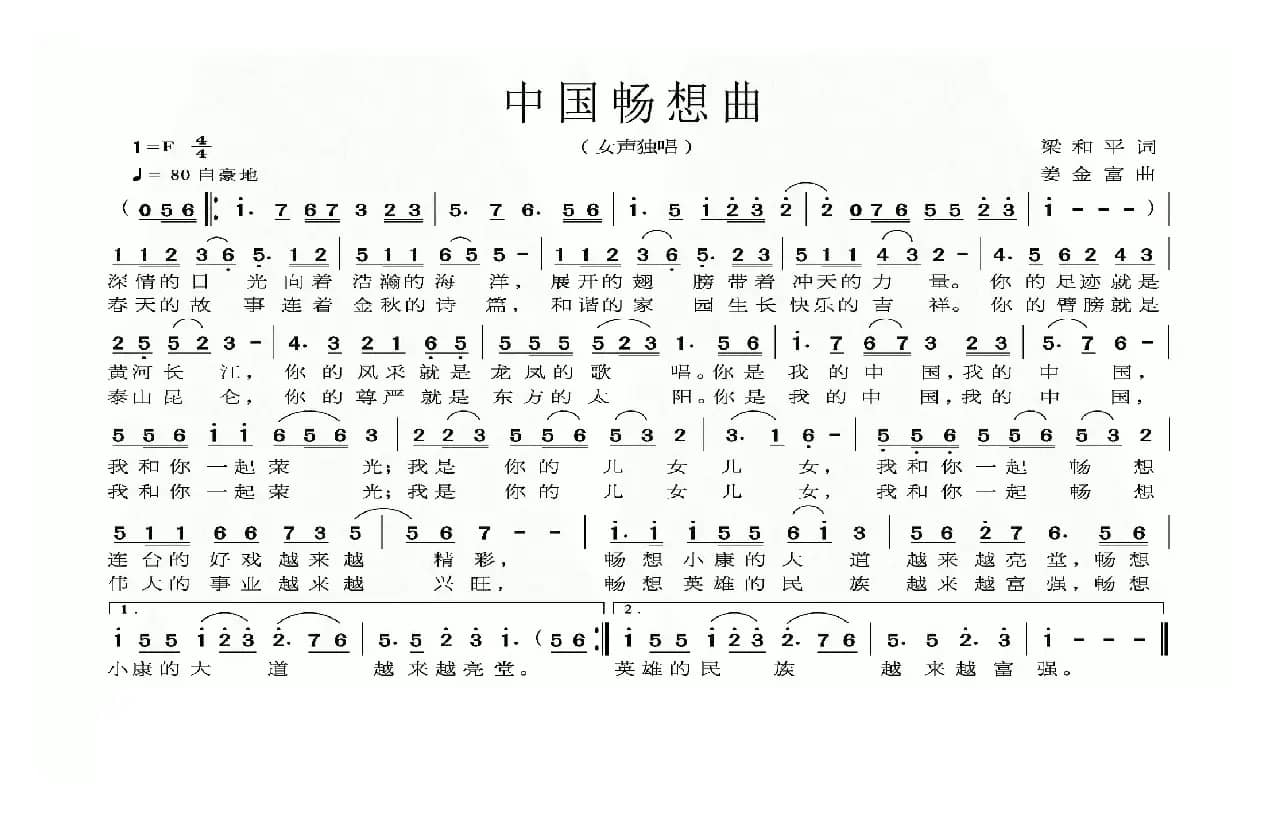 中国畅想曲
1=F 4/4 （女声独唱） 梁和平 词
♩= 80 自豪地 姜金富 曲
（0 5 6 |: i· 7 6 7 3 2 3 | 5· 7 6· 5 6 | i· 5 i 2 3 2 | 2 0 7 6 5 5 2 3 | i - - -） |
1 1 2 3 6 5· 1 2 | 5 1 1 6 5 5 - | 1 1 2 3 6 5· 2 3 | 5 1 1 4 3 2 - | 4· 5 6 2 4 3 |
深情的日 光 向着 浩瀚的海 洋， 展开的翅 膀带着 冲天的力 量。 你 的 足迹 就是
春天的故 事 连着 金秋的诗 篇， 和谐的家 园生长 快乐的吉 祥。 你 的 臂膀就是
2 5 5 2 3 - | 4· 3 2 1 6 5 | 5 5 5 5 2 3 1· 5 6 | i· 7 6 7 3 2 3 | 5· 7 6 - |
黄河 长 江， 你 的 风采 就 是 龙 凤的 歌 唱。你 是 我 的 中 国，我 的 中 国，
泰山 昆 仑， 你 的 尊严 就 是 东 方的 太 阳。你 是 我 的 中 国，我 的 中 国，
5 5 6 i i 6 5 6 3 | 2 2 3 5 5 6 5 3 2 | 3· 1 6 - | 5 5 6 5 5 6 5 3 2 |
我 和 你 一 起 荣 光；我 是 你 的 儿 女 儿 女， 我 和 你 一 起 畅 想
我 和 你 一 起 荣 光；我 是 你 的 儿 女 儿 女， 我 和 你 一 起 畅 想
5 1 1 6 6 7 3 5 | 5 6 7 - - | i· i i 5 5 6 i 3 | 5 6 2 7 6· 5 6 |
连 台 的 好 戏 越 来 越 精 彩， 畅 想 小 康 的 大 道 越 来 越 亮 堂，畅 想
伟 大 的 事 业 越 来 越 兴 旺， 畅 想 英 雄 的 民 族 越 来 越 富 强，畅 想
1. 2.
i 5 5 i 2 3 2· 7 6 | 5· 5 2 3 i·（5 6 :| i 5 5 i 2 3 2· 7 6 | 5· 5 2· 3 | i - - - ‖
小 康 的 大 道 越 来 越 亮 堂。 英 雄 的 民 族 越 来 越 富 强。